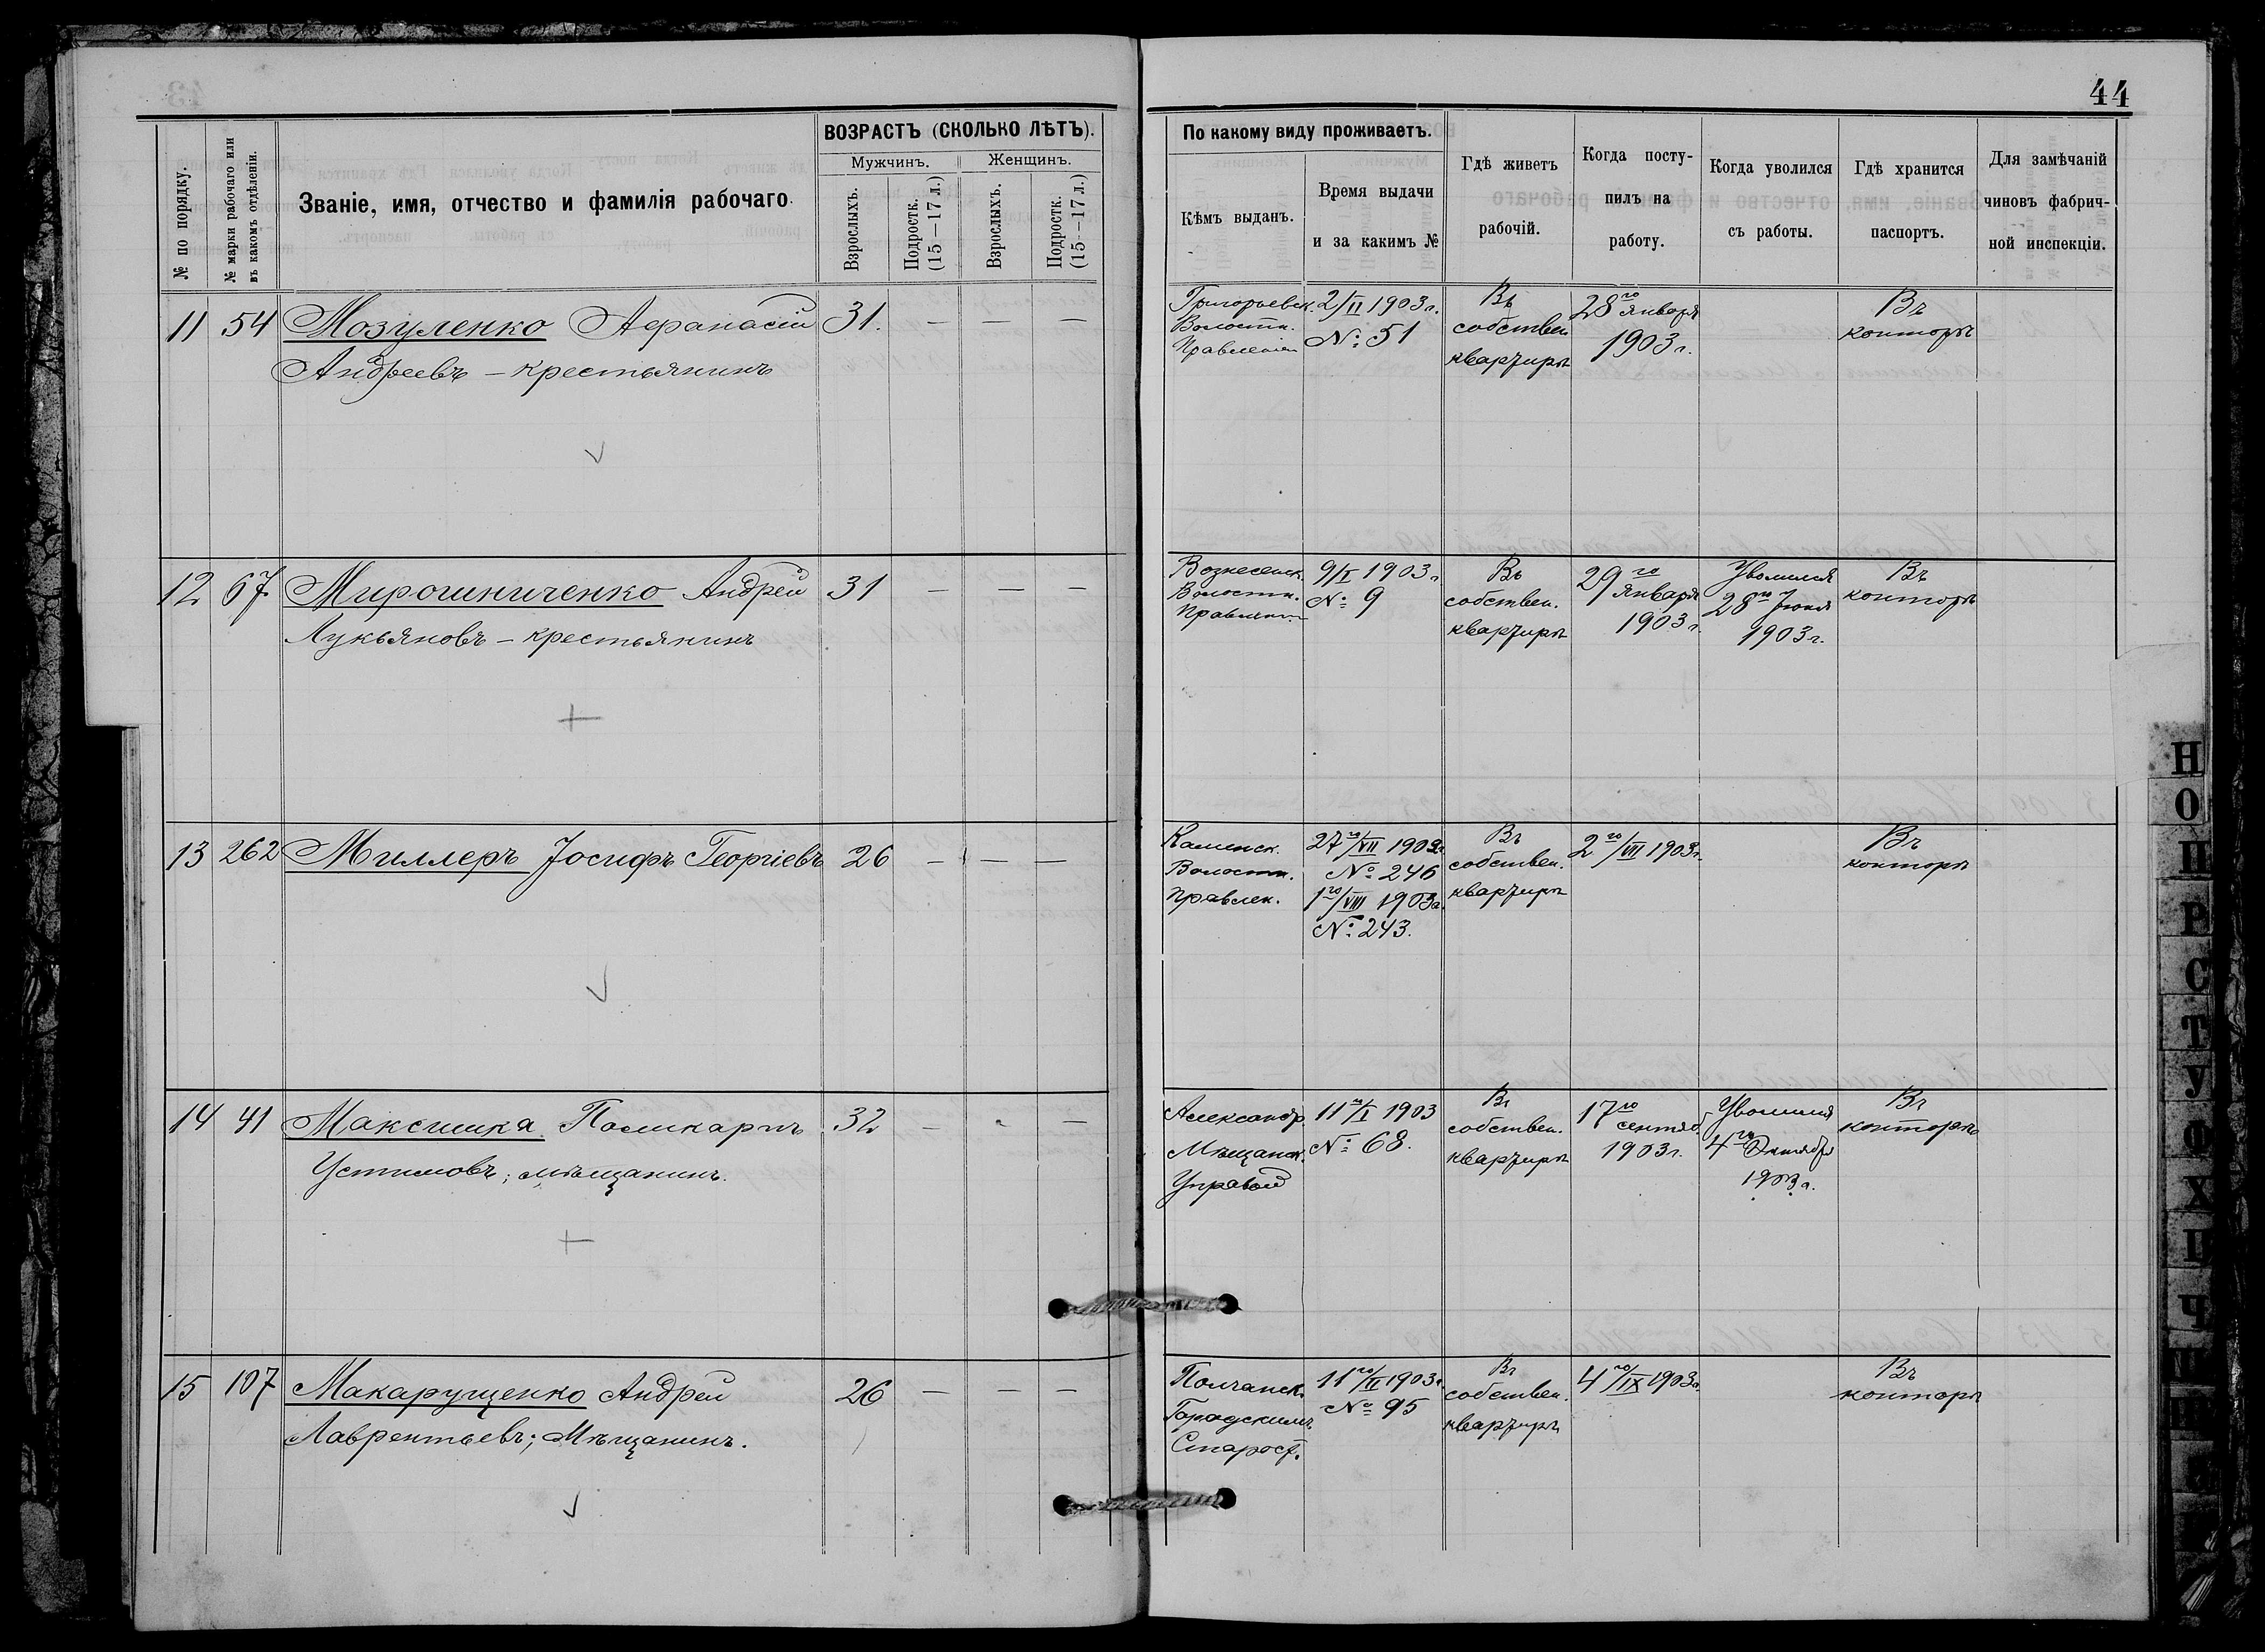 44
№ по порядку.
№ марки рабочаго или
въ какомъ отдѣленіи.
Званіе, имя, отчество и фамилія рабочаго.
ВОЗРАСТЪ (СКОЛЬКО ЛѢТЪ).
Мужчинъ.
Женщинъ.
Взрослыхъ.
Подростк.
(15—17 л.)
Взрослыхъ.
Подростк.
(15—17 л.)
По какому виду проживаетъ.
Кѣмъ выданъ.
Время выдачи
и за какимъ №
Гдѣ живетъ
рабочій.
Когда посту-
пилъ на
работу.
Когда уволился
съ работы.
Гдѣ хранится
паспортъ.
Для замѣчаній
чиновъ фабрич-
ной инспекціи.
11 54 Мозуленко Афанасій 31. — — —
Андреевъ – крестьянинъ
Григорьевск.
Волостн.
Правленіем
2/II 1903 г.
№ 51
Въ
собствен.
квартирѣ
28го января
1903 г.
Въ
конторѣ
12 67 Мирошниченко Андрей 31 — — —
Лукьяновъ – крестьянинъ
Вознесенск.
Волостн.
Правлен.
9/I 1903 г.
№ 9
Въ
собствен.
квартирѣ
29го
января
1903 г.
Уволился
28го Іюня
1903 г.
Въ
конторѣ
13 262 Миллеръ Іосифъ Георгіевъ 26 — — —
Каменск.
Волостн.
Правлен.
27го/VII 1902г.
№ 246
1го/VIII 1903г.
№ 243.
Въ
собствен.
квартирѣ
2го/VII 1903г.
Въ
конторѣ
14 41 Максимка Поликарпъ 32 — - —
Устимовъ; мѣщанинъ.
Александр.
Мѣщанск.
Управой
11го/I 1903
№ 68.
Въ
собствен.
квартирѣ
17го
сентяб.
1903 г.
Уволился
4го Октября
1903 г.
Въ
конторѣ
15 107 Макарущенко Андрей 26 — — —
Лаврентьевъ; Мѣщанинъ.
Полчанск.
Городскимъ
Старост.
11го/II 1903г.
№ 95
Въ
собствен.
квартирѣ
4го/IX 1903г.
Въ
конторѣ
Н
О
П
Р
С
Т
У
Ф
Х
Ц
Ч